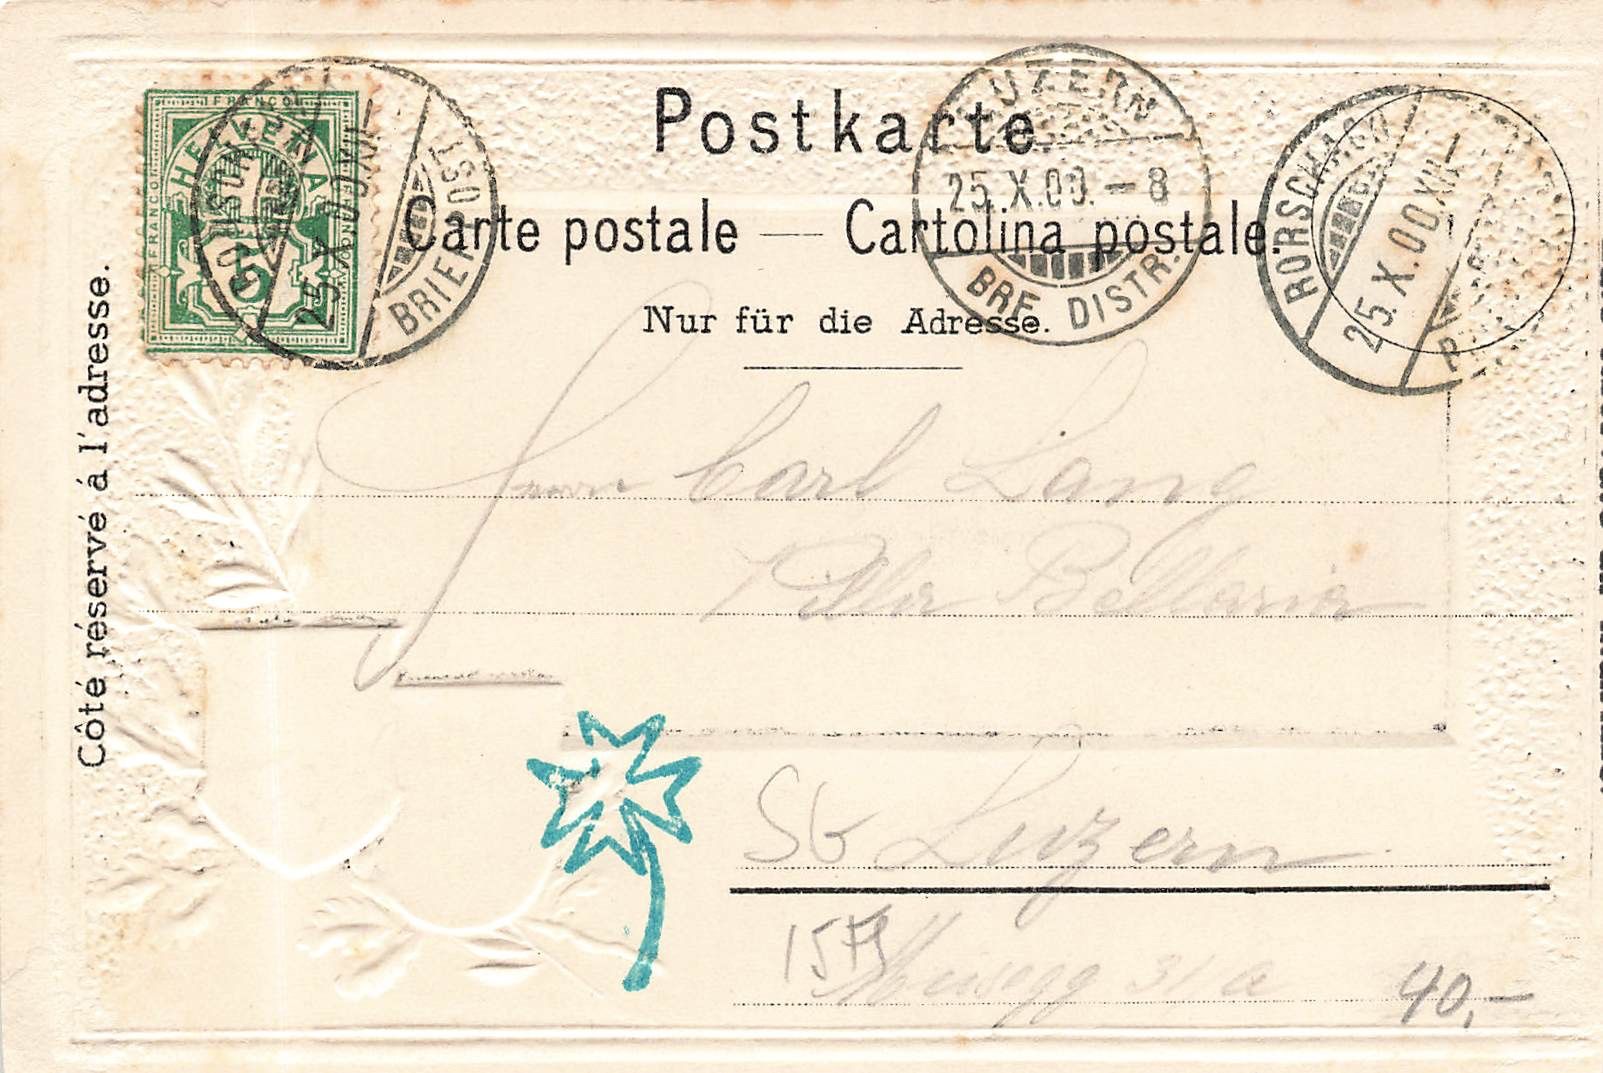 Postkarte
Carte postale — Cartolina postale.
Nur für die Adresse.
Côté réservé á l'adresse.
FRANCO
HELVETIA
FRANCO
FRANCO
5
25.X.00.XII-
BRIEFPOST
LUZERN
25.X.00.-8
BRF. DISTR.
RORSCHACH
25.X.00.XII-
Herrn Carl Lang
Villa Bellaria
Luzern
Musegg 31 a
40,-